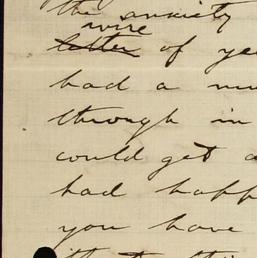 the anxiety
wire
letter of ye
had a mu
through in
could get a
had happ
you have